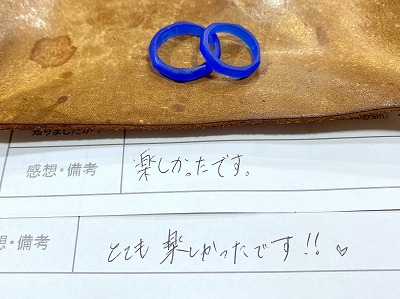 知りましたか？
感想・備考
楽しかったです。
想・備考
とても楽しかったです!! ♡